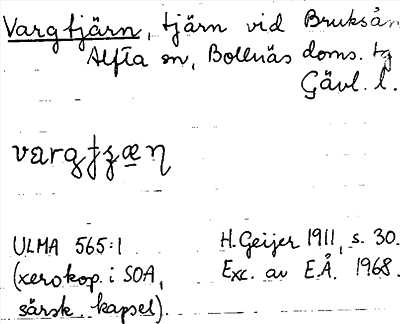 Vargtjärn, tjärn vid Bruksån
Alfta sn, Bollnäs doms. tg
Gävl. l.
H. Geijer 1911, s. 30.
ULMA 565:1
Exc. av E.Å. 1968.
(xerokop. i SOA,
särsk. kapsel).